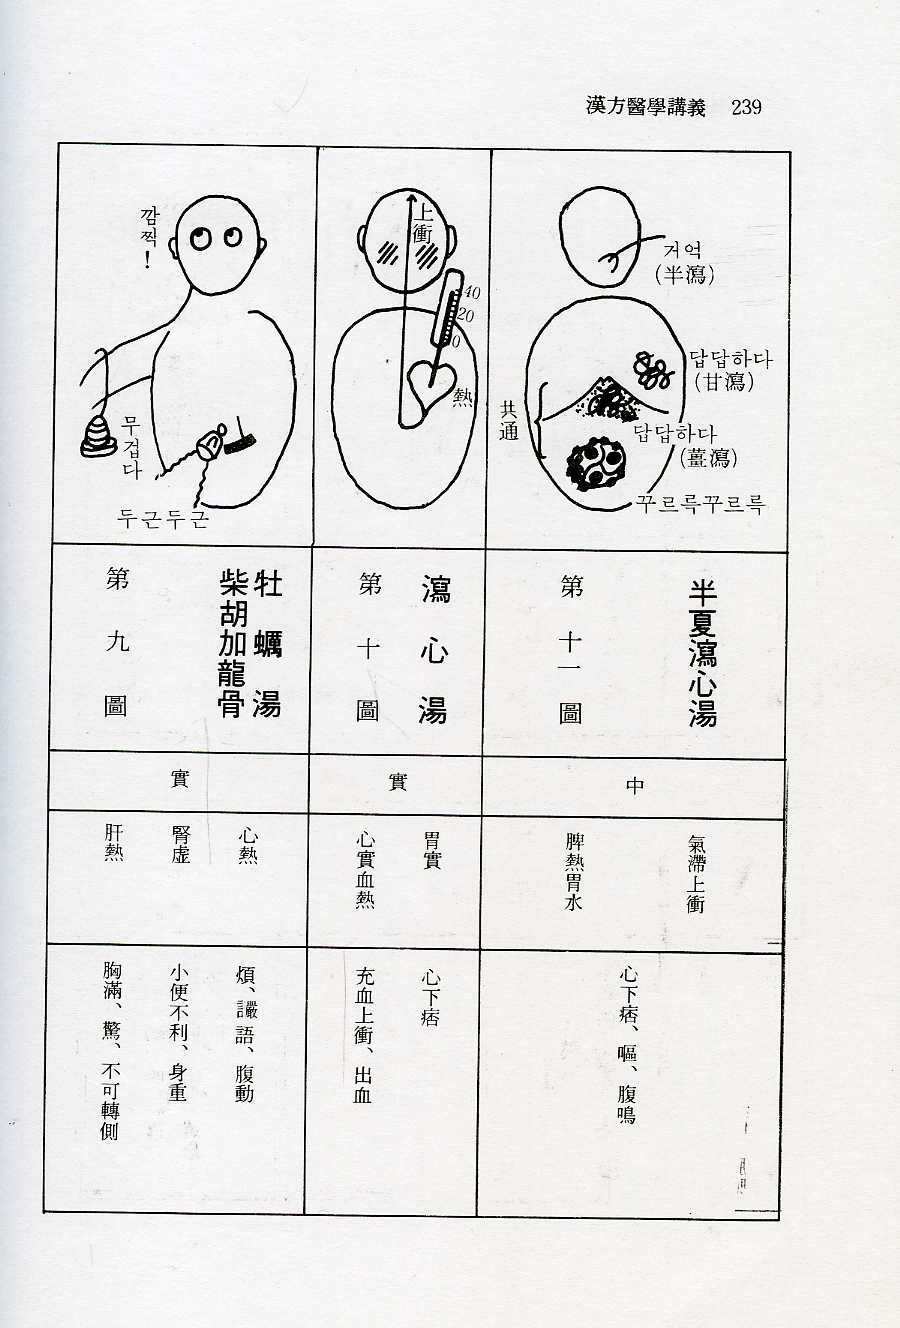 漢方醫學講義 239
거역
(半瀉)
답답하다
(甘瀉)
共通
답답하다
(薑瀉)
꾸르륵꾸르륵
半夏瀉心湯
第十一圖
中
氣滯上衝
脾熱胃水
心下痞、嘔、腹鳴
上衝
40
20
0
熱
瀉心湯
第十圖
實
胃實
心實血熱
心下痞
充血上衝、出血
깜찍!
무겁다
두근두근
柴胡加龍骨
牡蠣湯
第九圖
實
心熱
腎虛
肝熱
煩、讝語、腹動
小便不利、身重
胸滿、驚、不可轉側